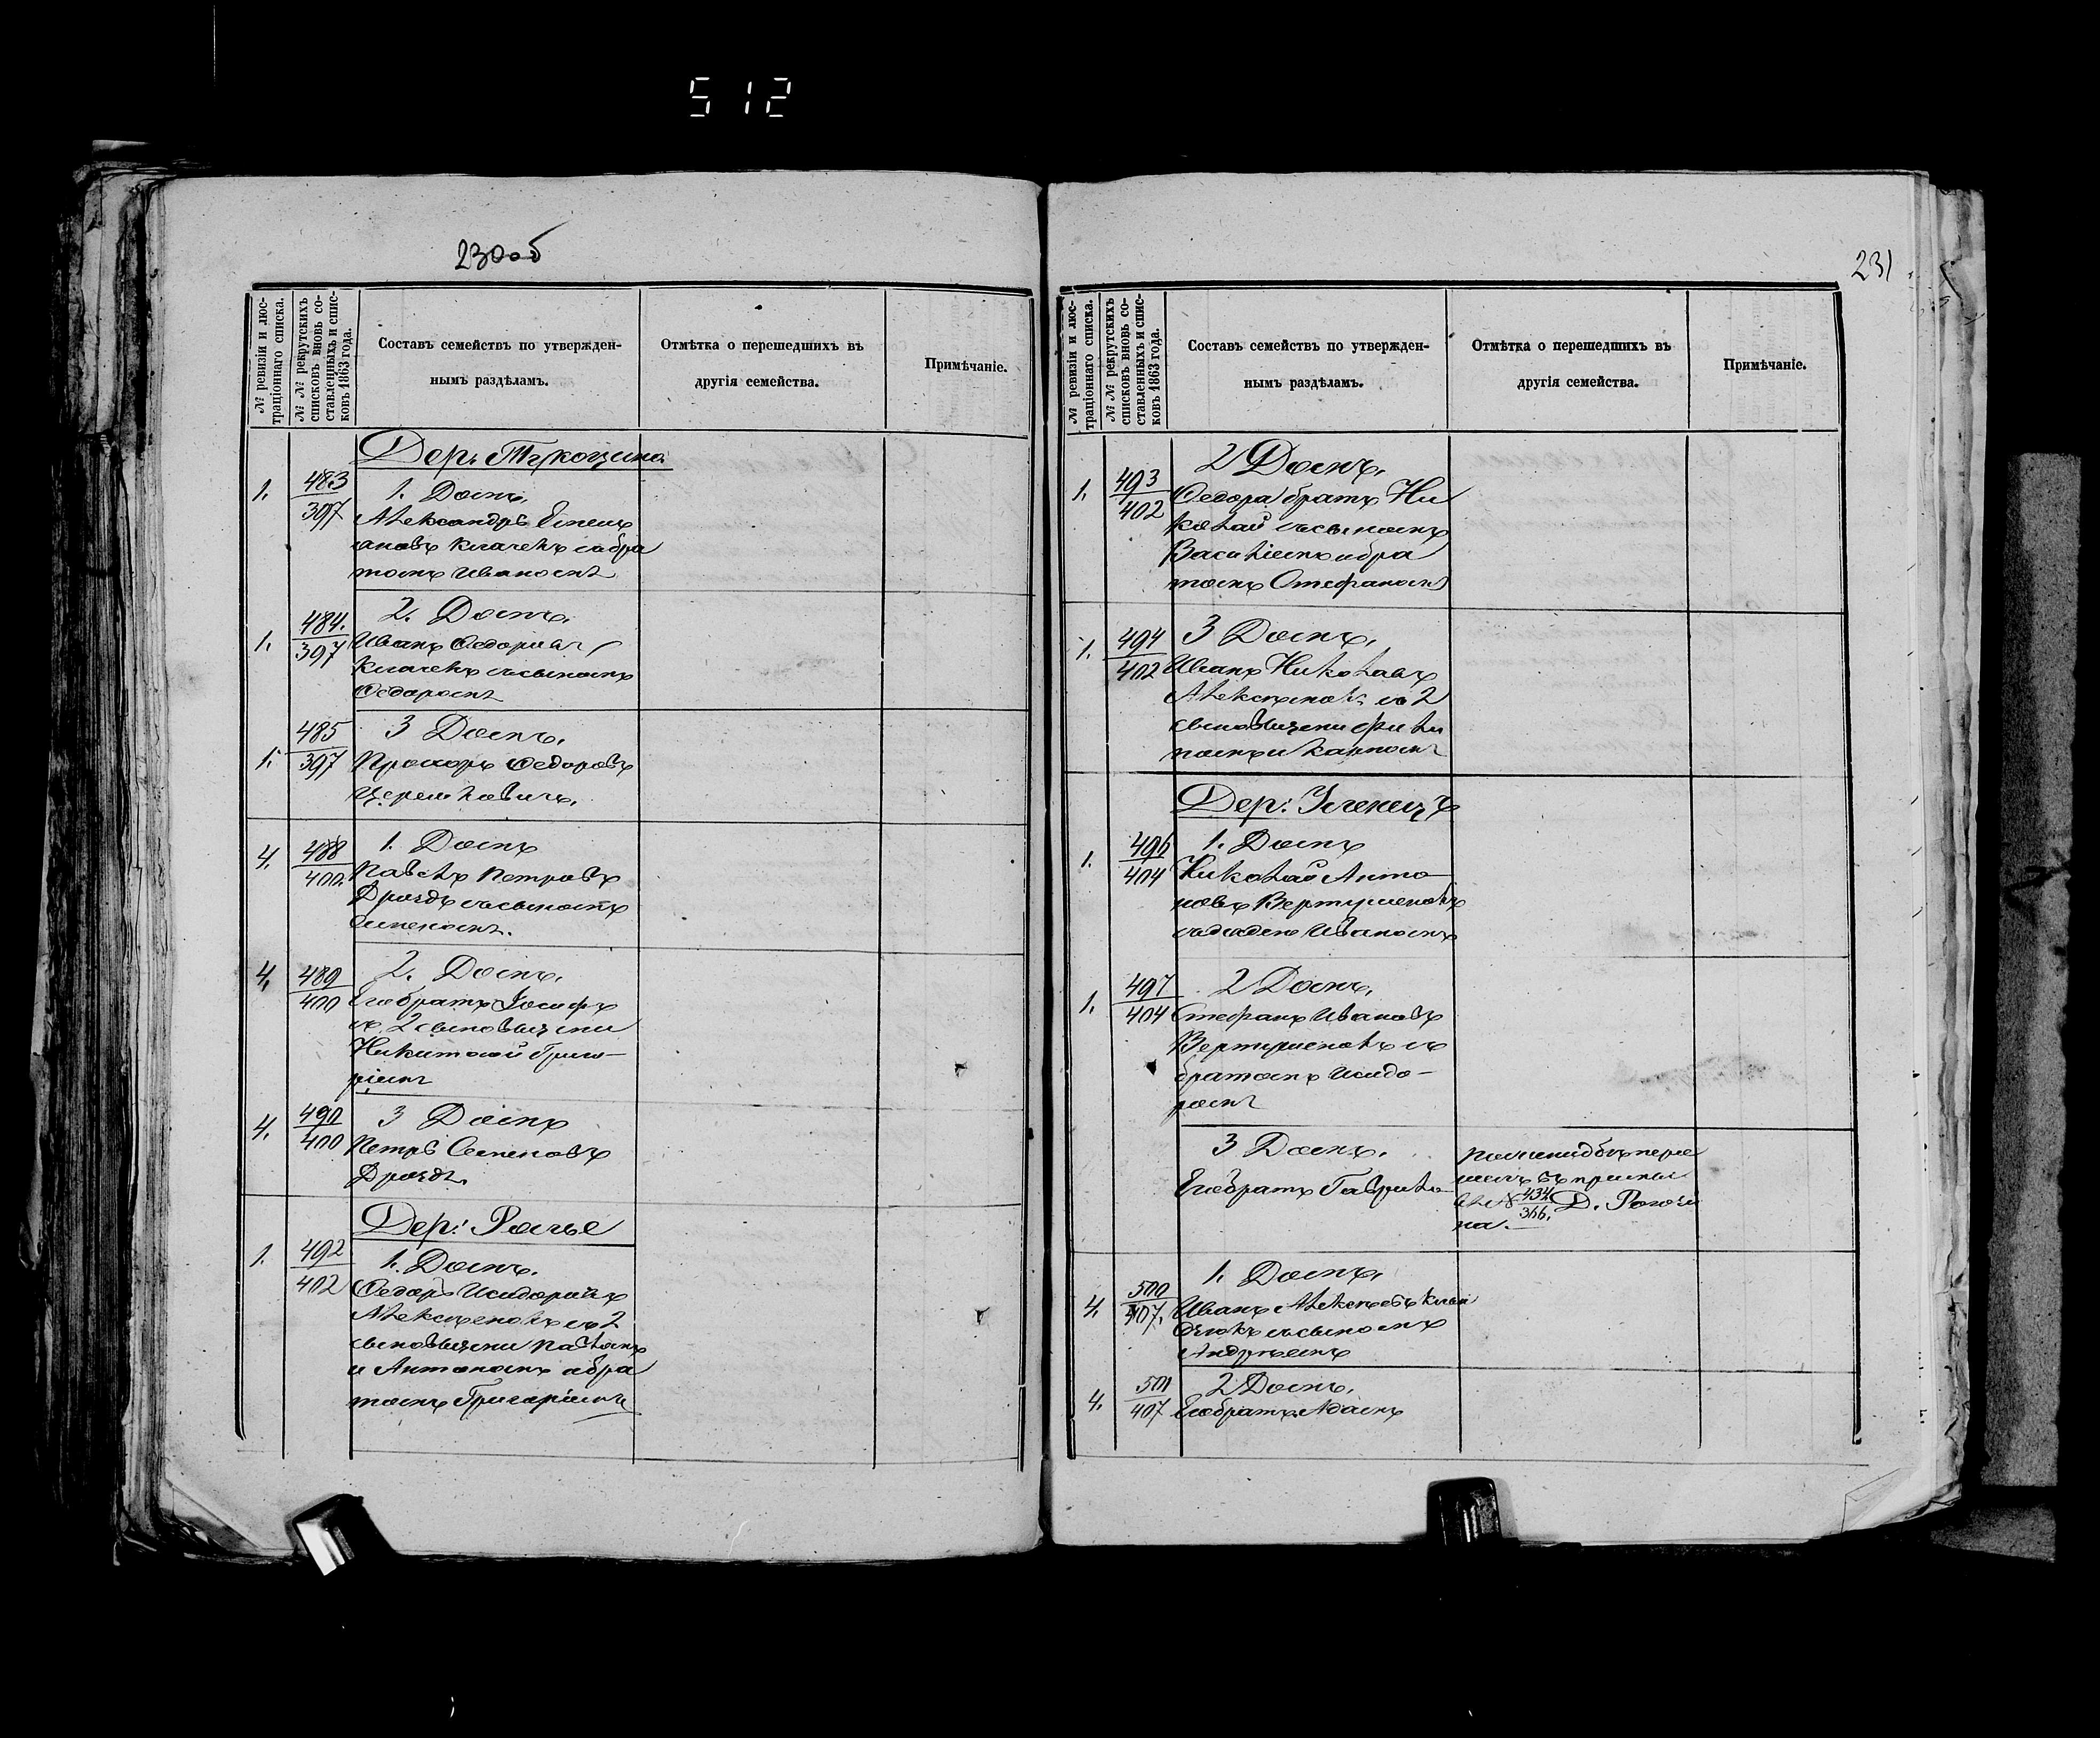 512
230об
№ ревизіи и люс-
траціоннаго списка.
№ № рекрутскихъ
списковъ вновь со-
ставленныхъ и спис-
ковъ 1863 года.
Составъ семействъ по утвержден-
нымъ раздѣламъ.
Отмѣтка о перешедшихъ въ
другія семейства.
Примѣчаніе.
Дер.
1. 483
397
1. Домъ.
Александръ
братомъ Иваномъ
1. 484.
397
2. Домъ.
Иванъ Ѳедоровъ
съ сыномъ
Ѳедоромъ
1. 485
397
3 Домъ.
Прохоръ Ѳедоровъ
4. 488
400.
1. Домъ
Павелъ Петровъ
Дроздъ съ сыномъ
Семеномъ.
4. 489
400
2. Домъ.
Его братъ Іосифъ
съ 2 сыновьями
Никитой и Григо-
ріемъ
4. 490
400
3 Домъ
Петръ Семеновъ
Дроздъ.
Дер:
1. 492
402
1. Домъ.
Ѳедоръ Исидоровъ
съ 2
сыновьями Павломъ
и Антономъ и бра
томъ Григоріемъ
231
№ ревизіи и люс-
траціоннаго списка.
№ № рекрутскихъ
списковъ вновь со-
ставленныхъ и спис-
ковъ 1863 года.
Составъ семействъ по утвержден-
нымъ раздѣламъ.
Отмѣтка о перешедшихъ въ
другія семейства.
Примѣчаніе.
1. 493
402
2 Домъ.
Ѳедора братъ Ни
колай съ сыномъ
Василіемъ и бра
томъ Стефаномъ
1. 494
402
3 Домъ.
Иванъ Николаевъ
съ 2
сыновьями Фили
помъ и Карпомъ
Дер:
1. 496
404
1. Домъ
Николай Анто
новъ
съ дядею Иваномъ
1. 497
404
2 Домъ.
Стефанъ Ивановъ
съ
братомъ Исидо-
ромъ
3 Домъ.
Его братъ Гаврило
пере
шелъ въ
№ 434
366. Д.
на.
4. 500
407.
1. Домъ.
Иванъ Алексѣевъ
съ сыномъ
Андреемъ
4. 501
407
2 Домъ.
Его братъ Адамъ